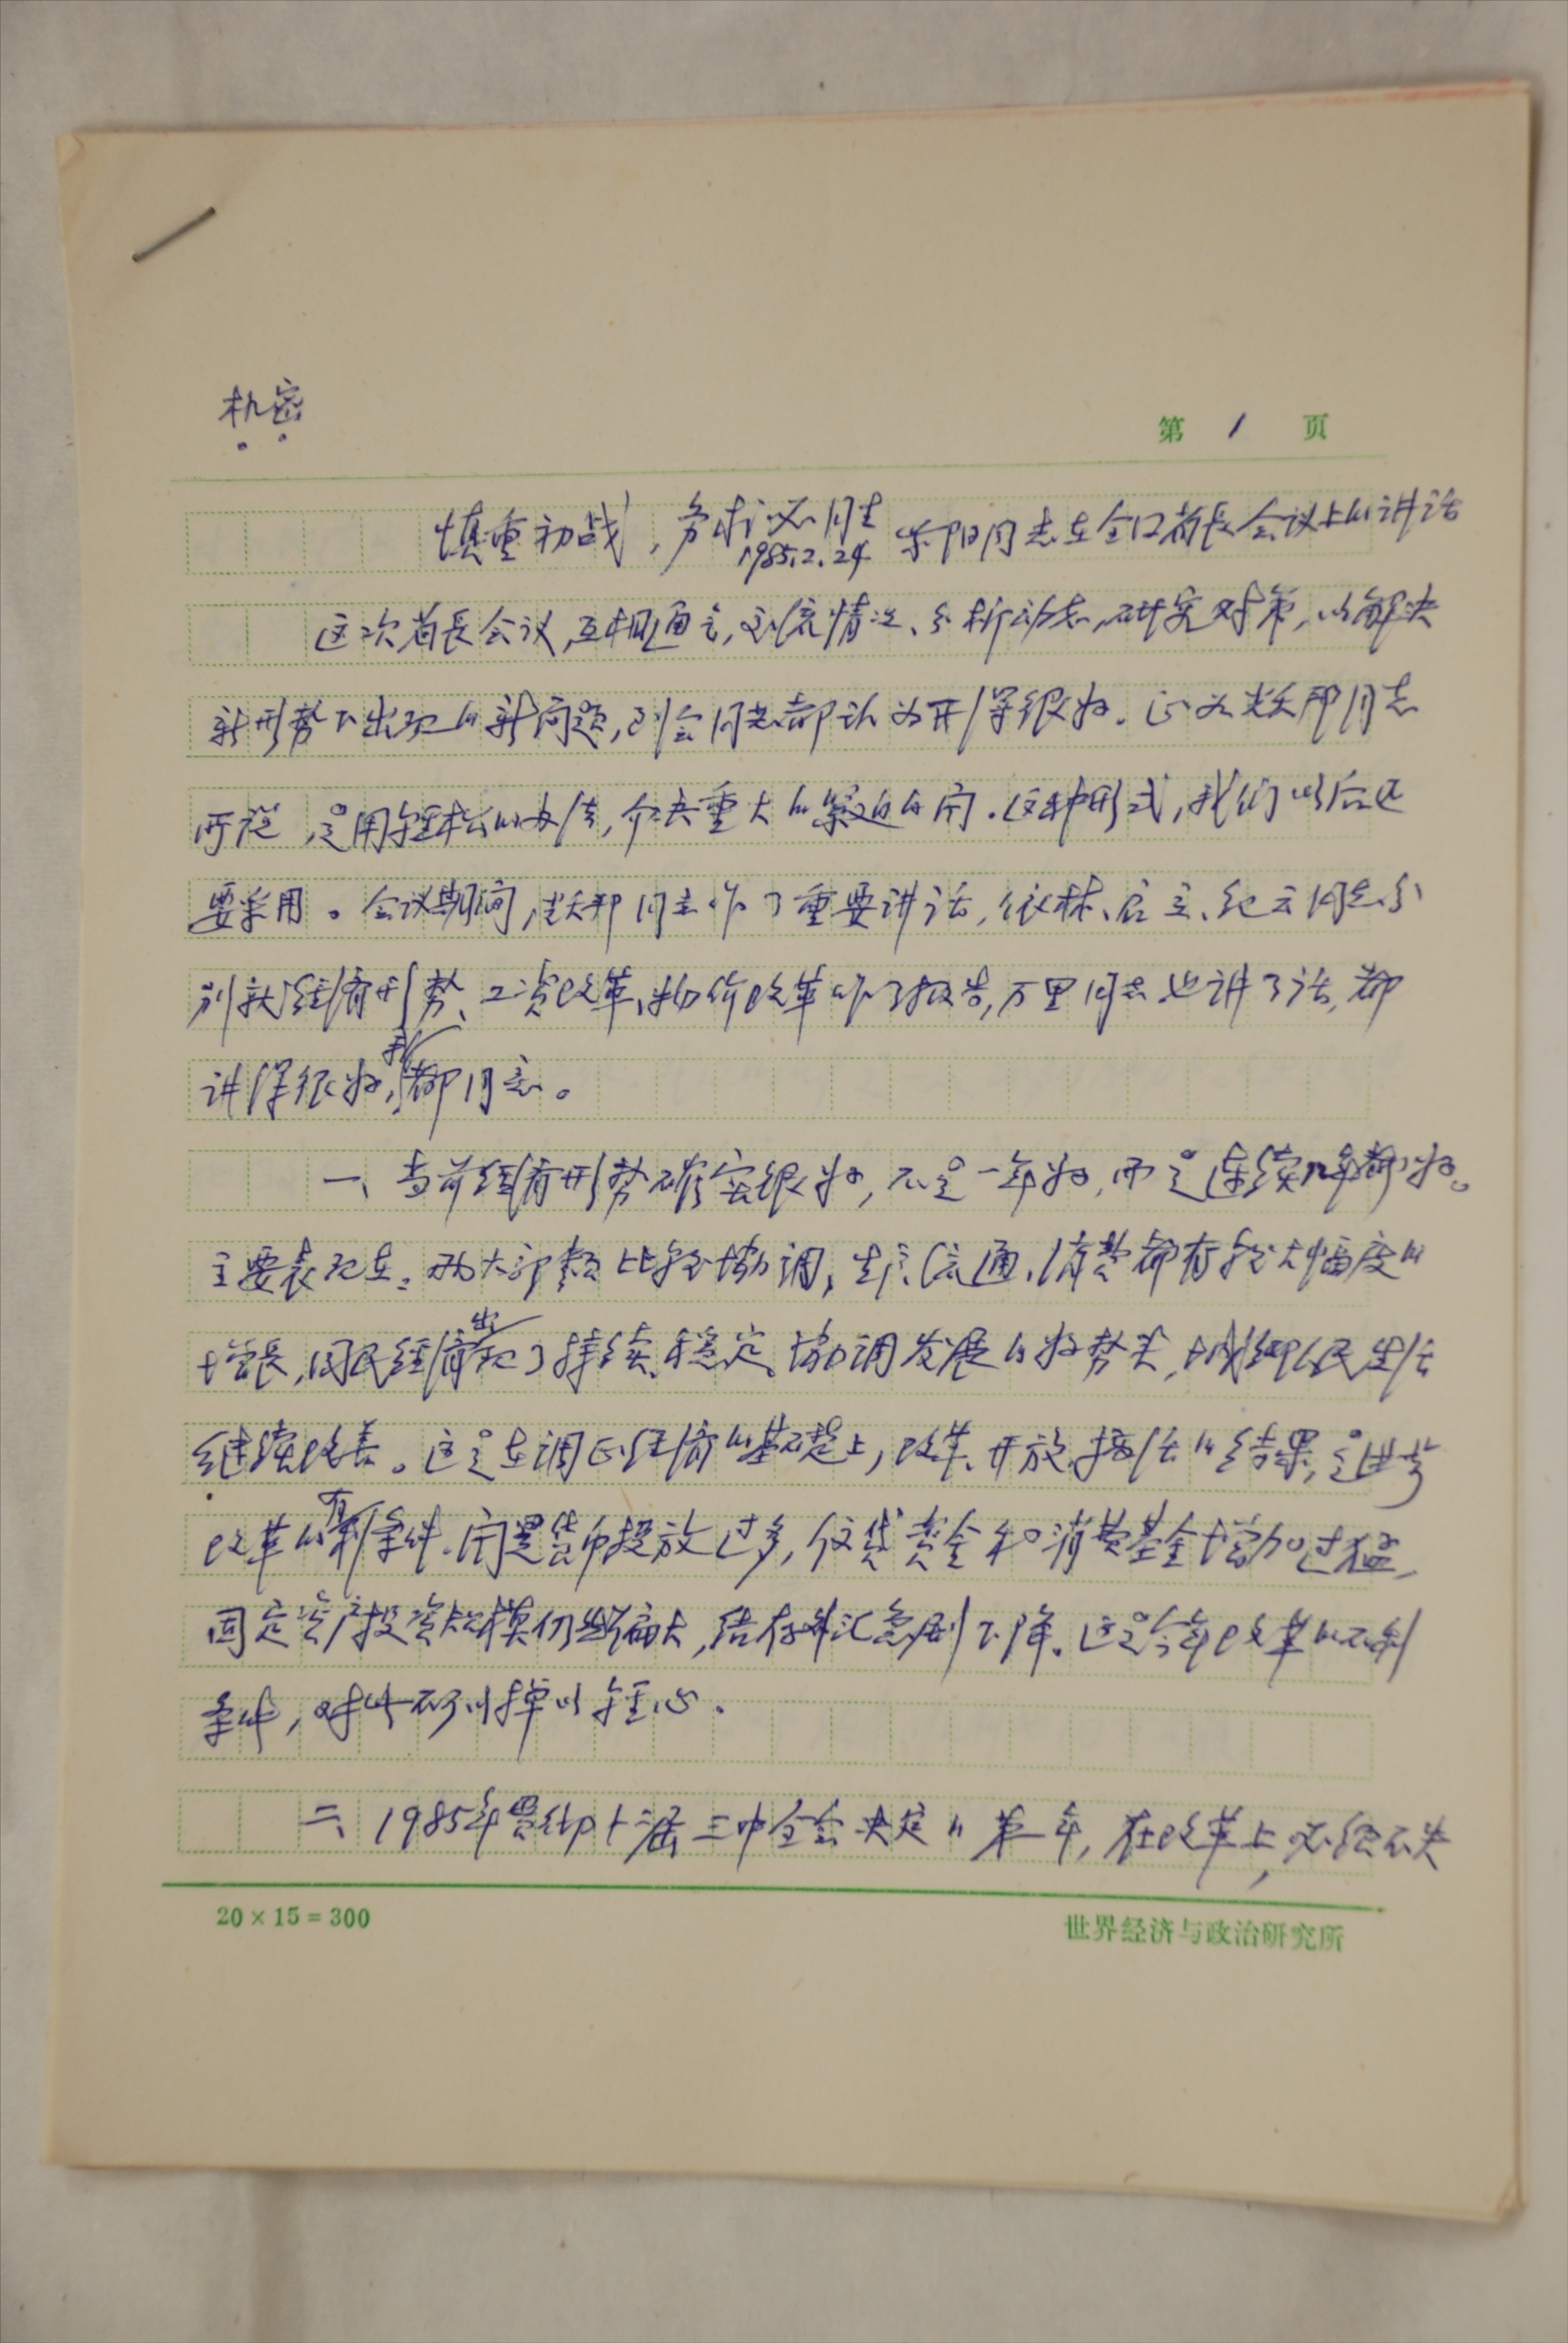 机密
第 1 页
慎重初战，务求必胜 紫阳同志在全国省长会议上的讲话
1985.2.24
这次省长会议，互相通气，交流情况、分析动态，研究对策，以解决
新形势下出现的新问题，到会同志都认为开得很好。正如耀邦同志
所说，是用轻松的办法，解决重大的紧迫的问。这种形式，我们以后还
要采用。会议期间，耀邦同志作了重要讲话，依林、启立、纪云同志分
别就经济形势、工资改革、物价改革作了报告，万里同志也讲了话，都
讲得很好，我都同意。
一、当前经济形势确实很好，不是一年好，而是连续几年都好。
主要表现在：两大部类比较协调，生产、流通、消费都有较大幅度的
增长，国民经济出现了持续、稳定、协调发展的好势头，城乡人民生活
继续改善。这是在调正经济的基础上，改革、开放、搞活的结果，是进行
改革的有利条件。问题是货币投放过多，信贷资金和消费基金增加过猛，
固定资产投资规模仍然偏大，结存外汇急剧下降。这是今年改革的不利
条件，对此不可以掉以轻心。
二、1985年是贯彻十二届三中全会决定的第一年，在改革上，必须不失
20×15=300
世界经济与政治研究所